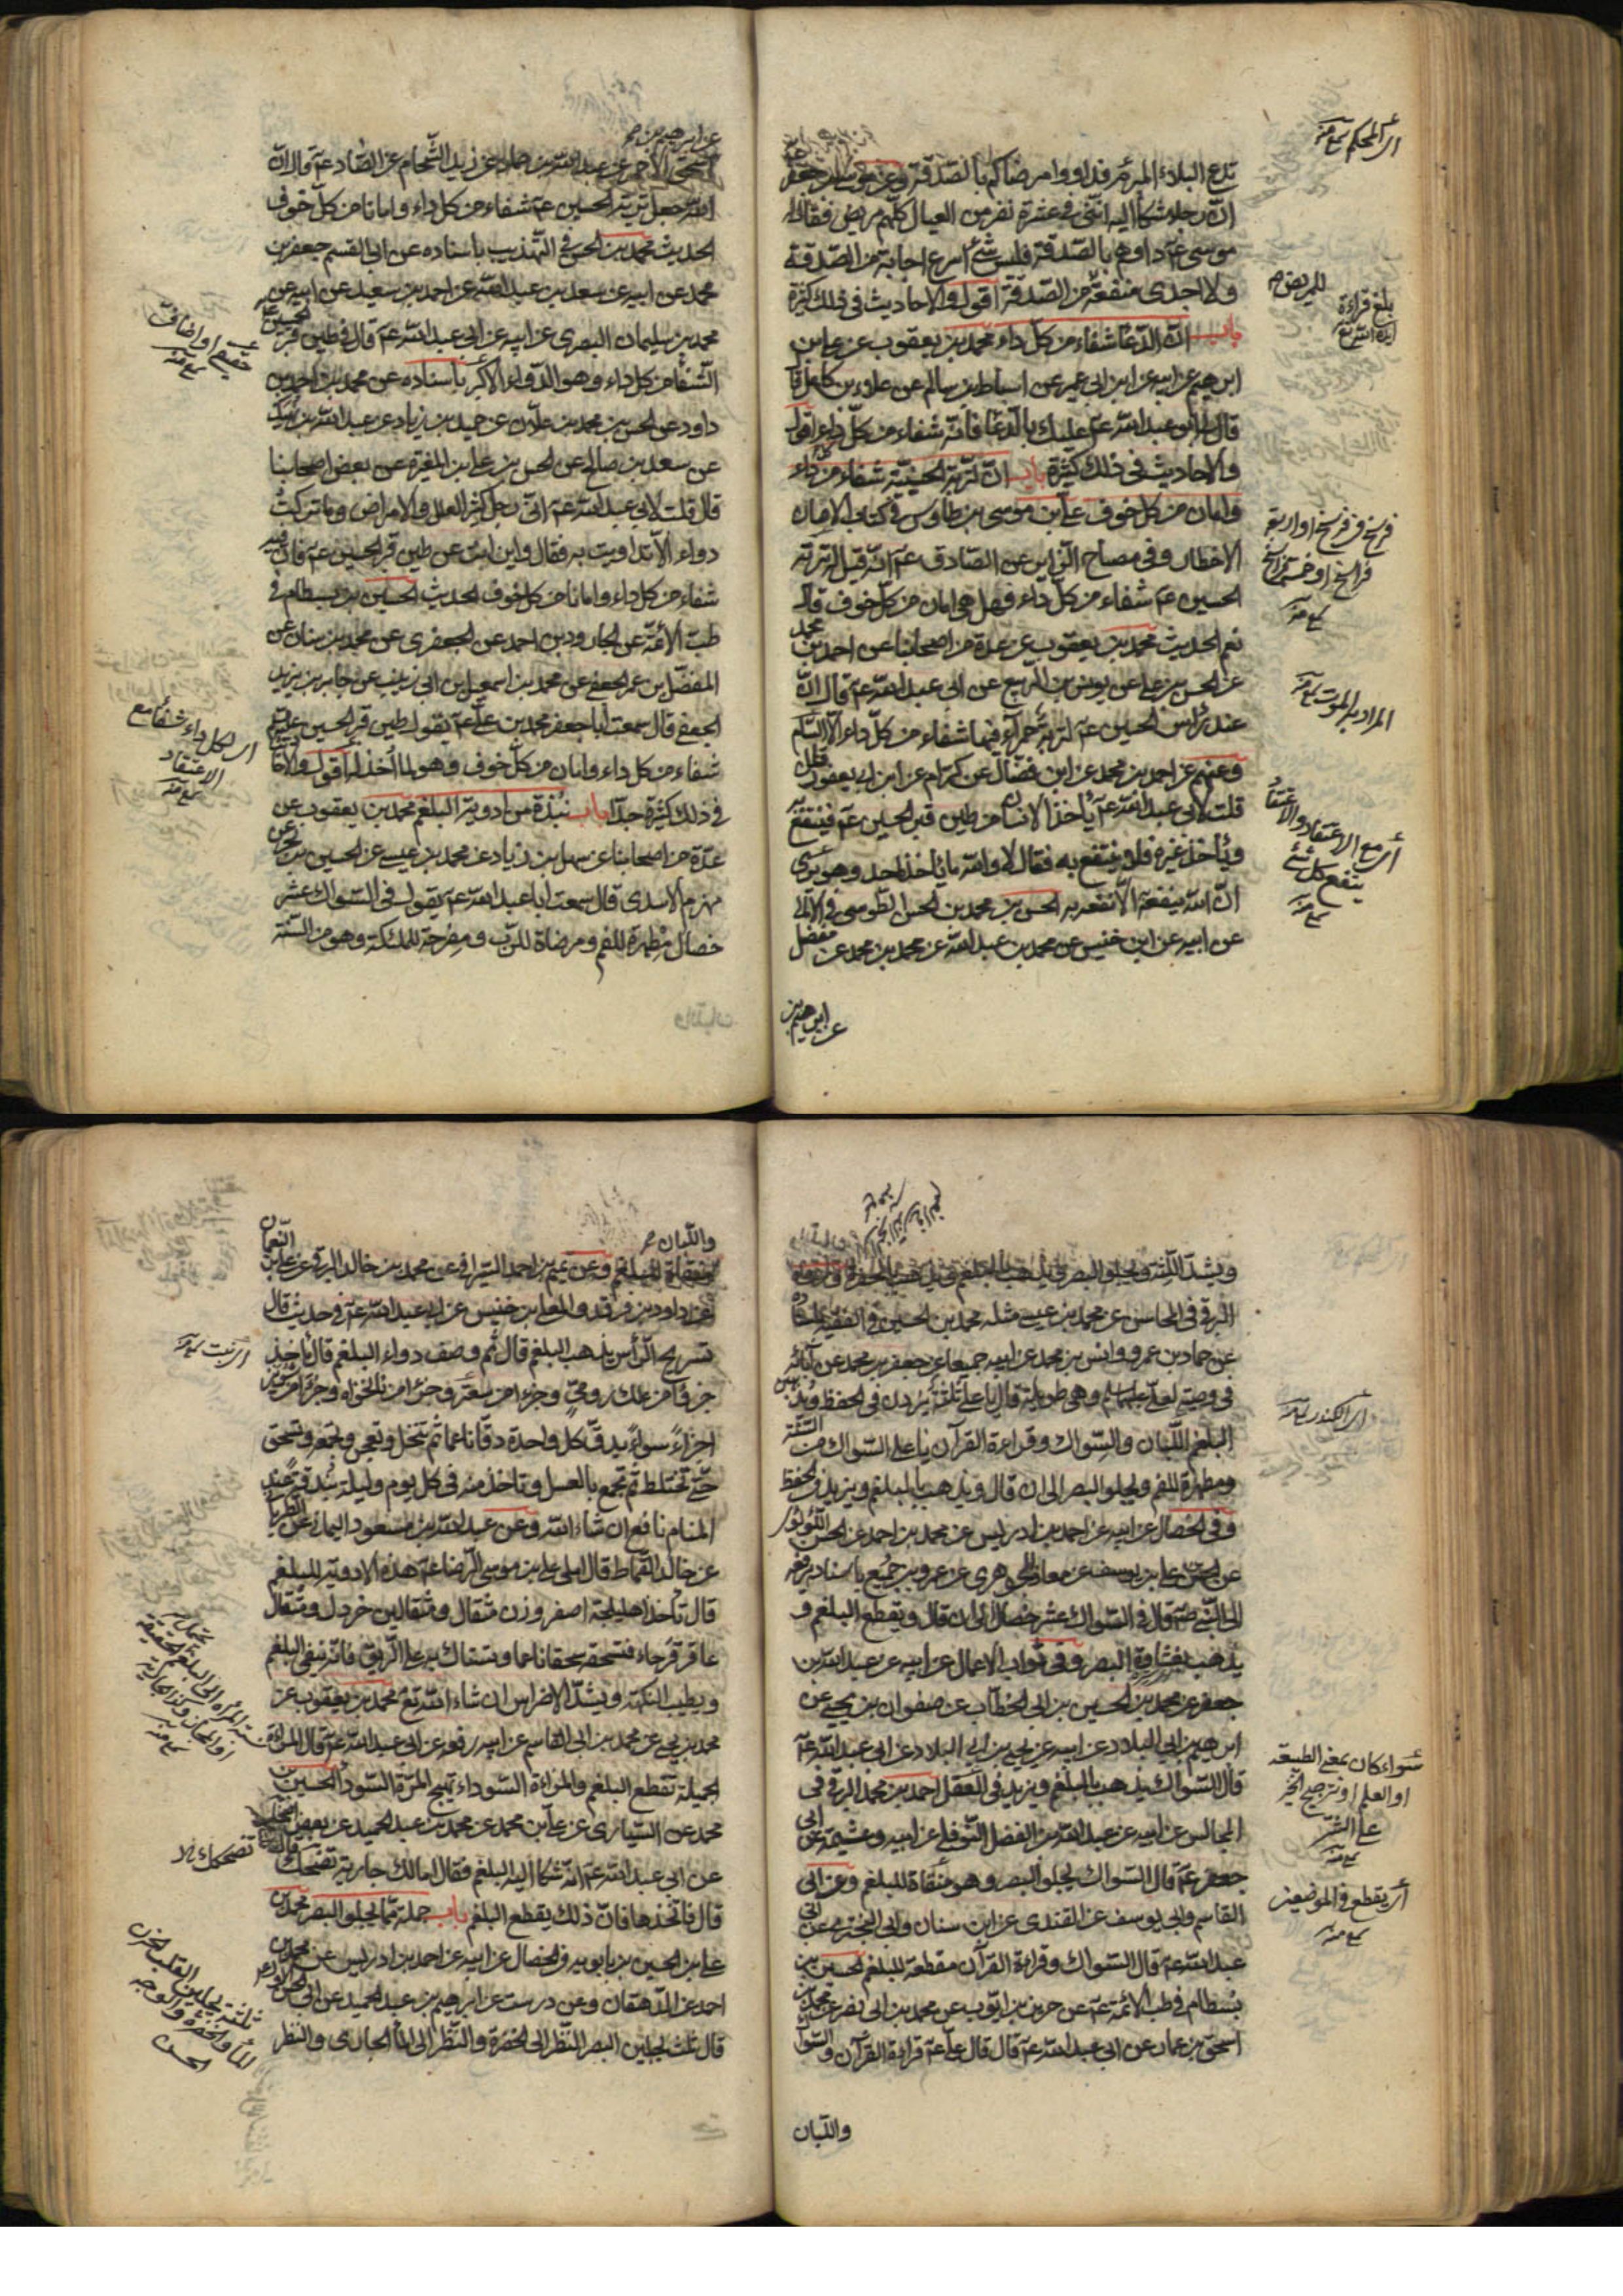 تدفع البلاء المبرم فداووا مرضاكم بالصدقة وعن موسى بن جعفر
ان رجلا شكا اليه انني في عشرة نفر من العيال كلهم مريض فقال له
موسى عم داوهم بالصدقة فليس شئ اسرع اجابة من الصدقة
ولا اجدى منفعة من الصدقة اقول والاحاديث في ذلك كثيرة
باب ان الدعا شفاء من كل داء محمد بن يعقوب عن علي بن
ابرهيم عن ابيه عن ابن ابي عمير عن اسباط بن سالم عن علاء بن كامل قا
قال لي ابو عبد الله عم عليك بالدعا فانه شفاء من كل داء اقول
والاحاديث في ذلك كثيرة باب ان تربة الحسينية شفاء من كل داء
وامان من كل خوف علي بن موسى بن طاوس في كتاب الامان
الاخطار وفي مصباح الزاير عن الصادق عم انه قيل له تربة
الحسين عم شفاء من كل داء فهل هي امان من كل خوف قال
نعم الحديث محمد بن يعقوب عن عدة من اصحابنا عن احمد بن محمد
عن الحسن بن علي عن يونس بن الربيع عن ابي عبد الله عم قال ان
عند راس الحسين عم لتربة حمراء فيها شفاء من كل داء الا السام
وعنهم عن احمد بن محمد عن ابن فضال عن كرام عن ابن ابي يعفور قال
قلت لابي عبد الله عم يأخذ الانسان من طين قبر الحسين عم فينتفع به
ويأخذ غيره فلا ينتفع به فقال لا والله ما يأخذ احد وهو يرى
ان الله ينفعه الا نفعه به الحسن بن محمد بن الحسن الطوسي في الامالي
عن ابيه عن ابن خنيس عن محمد بن عبد الله عن محمد بن محمد عن مفضل
عن ابرهيم بن
اي المحكم منه
للمريض
بلغ قراءة
ايده الله تع
فرسخ في فرسخ او اربعة
فراسخ او خمسة فراسخ
منه
المراد به الموت منه
اي مع الاعتقاد والا
ينتفع كل شئ
منه
عن ابرهيم بن
اسحق الاحمر عن عبد الله بن حماد عن زيد الشحام عن الصادق عم قال ان
الله جعل تربة الحسين عم شفاء من كل داء وامانا من كل خوف
الحديث محمد بن الحسن في التهذيب باسناده عن ابي القسم جعفر بن
محمد عن ابيه عن سعد بن عبد الله عن احمد بن سعيد عن ابيه عن
محمد بن سليمان البصري عن ابيه عن ابي عبد الله عم قال في طين قبر الحسين عم
الشفا من كل داء وهو الدواء الاكبر باسناده عن محمد بن احمد بن
داود عن الحسن بن محمد بن علان عن حميد بن زياد عن عبد الله بن نهيك
عن سعد بن صالح عن الحسن بن علي بن المغيرة عن بعض اصحابنا
قال قلت لابي عبد الله عم اني رجل كثير العلل والامراض وما تركت
دواء الا تداويت به فقال واين انت عن طين قبر الحسين عم فان فيه
شفاء من كل داء وامانا من كل خوف الحديث الحسين بن بسطام في
طب الائمة عن الجارود بن احمد عن الجعفري عن محمد بن سنان عن
المفضل بن عمر الجعفي عن محمد بن اسمعيل بن ابي زينب عن جابر بن يزيد
الجعفي قال سمعت ابا جعفر محمد بن علي عم يقول طين قبر الحسين عم
شفاء من كل داء وامان من كل خوف وهو لما أخذ له اقول والاحاديث
في ذلك كثيرة جدا باب نبذة من ادوية البلغم محمد بن يعقوب عن
عدة من اصحابنا عن سهل بن زياد عن محمد بن عيسى عن الحسين بن بحر عن
مهزم الاسدى قال سمعت ابا عبد الله عم يقول في السواك عشر
خصال مطهرة للفم ومرضاة للرب ومفرحة للملئكة وهو من السنة
اي لكل داء شفا مع
الاعتقاد
منه
ويشد اللثة ويجلو البصر ويذهب بالبلغم ويذهب بالحفر
البرقي في المحاسن عن محمد بن عيسى مثله محمد بن الحسين في الفقيه باسناده
عن حماد بن عمرو وانس بن محمد عن ابيه جميعا عن جعفر بن محمد عن آبائه
في وصيته لعلي عليه السلم وهي طويلة قال يا علي ثلثة يزدن في الحفظ ويذهبن
البلغم اللبان والسواك وقراءة القرآن يا علي السواك من السنة
ومطهرة للفم ويجلو البصر الى ان قال ويذهب بالبلغم ويزيد في الحفظ
وفي الخصال عن ابيه عن احمد بن ادريس عن محمد بن احمد عن الحسن اللؤلؤي
عن الحسن بن علي بن يوسف عن معاذ الجوهري عن عمرو بن جميع باسناد يرفعه
الى النبي صم قال في السواك عشر خصال الى ان قال ويقطع البلغم و
يذهب بغشاوة البصر وفي ثواب الاعمال عن ابيه عن عبد الله بن
جعفر عن محمد بن الحسين بن ابي الخطاب عن صفوان بن يحيى عن
ابرهيم بن ابي البلاد عن ابيه عن يحيى بن ابي البلاد عن ابي عبد الله عم
قال السواك يذهب بالبلغم ويزيد في العقل احمد بن محمد البرقي في
المجالس عن ابيه عن عبد الله بن الفضل النوفلي عن ابيه وعيثمة عن ابي
جعفر عم قال السواك يجلو البصر وهو منقاة للبلغم وعن ابي
القاسم وابي يوسف عن القندى عن ابن سنان وابي البختري عن ابي
عبد الله عم قال السواك وقراءة القرآن مقطعة للبلغم الحسين بن
بسطام في طب الائمة عم عن حريز بن ايوب عن محمد بن ابي نصر عن محمد بن
اسحق بن عمار عن ابي عبد الله عم قال قال علي عم قراءة القرآن والسواك
واللبان
اي الكندر منه
سواء كان بمعنى الطبيعة
او العلم او ترجيح الخير
على الشر
منه
اي يقطع في الموضعين
منه
واللبان
منقاة للبلغم وعن تميم بن احمد السيرافي عن محمد بن خالد البرقي عن علي بن النعمان
عن داود بن فرقد والمعلى بن خنيس عن ابي عبد الله عم في حديث قال
تسريح الرأس يذهب البلغم قال ثم وصف دواء البلغم قال تأخذ
جزؤا من علك رومي وجزءا من سعتر وجزءا من نانخواه وجزءا من شونيز
اجزاء سواء يدق كل واحدة دقا ناعما ثم تنخل وتعجن وتجمع وتسحق
حتى تختلط ثم تجمع بالعسل وتاخذ منه في كل يوم وليلة بندقة عند
المنام نافع ان شاء الله وعن عبد الله بن مسعود اليماني عن الطرياني
عن خالد القماط قال املى علي بن موسى الرضا عم هذه الادوية للبلغم
قال تأخذ اهليلجة اصفر وزن مثقال ومثقالين خردل ومثقال
عاقر قرحاء فتسحقه سحقا ناعما وتستاك به على الريق فانه ينفي البلغم
ويطيب النكهة ويشد الاضراس ان شاء الله تع محمد بن يعقوب عن
محمد بن يحيى عن محمد بن ابي القاسم عن ابيه رفعه عن ابي عبد الله عم قال المراة
الجميلة تقطع البلغم والمراة السوداء تهيج المرة السودا الحسين بن
محمد عن السياري عن علي بن محمد عن محمد بن عبد الحميد عن بعض اصحابه
عن ابي عبد الله عم انه شكا اليه البلغم فقال اما لك جارية تضحكك قال لا
قال فاتخذها فان ذلك يقطع البلغم باب جملة مما يجلو البصر محمد بن
علي بن الحسين بن بابويه في الخصال عن ابيه عن احمد بن ادريس عن محمد بن
احمد عن الدهقان وعن درست عن ابرهيم بن عبد الحميد عن ابي الحسن الاول عم
قال ثلث يجلين البصر النظر الى الخضرة والنظر الى الماء الجارى والنظر